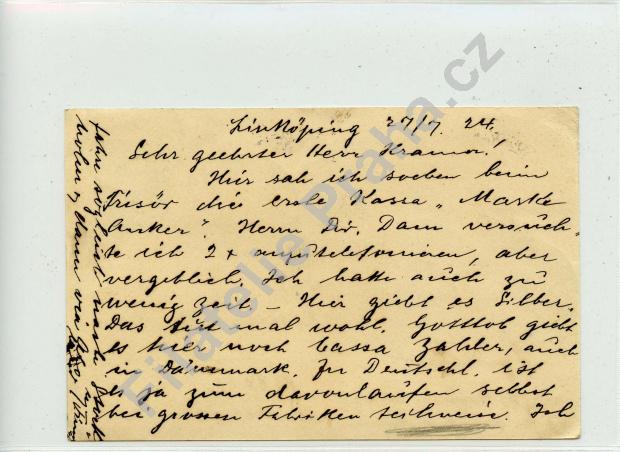 Linköping 27/7. 24.
Sehr geehrter Herr Kramer!
Hier sah ich soeben beim
Frisör die erste Kassa „Marke
Anker". Herrn Dir. Dam versuch-
te ich 2 x anzutelefonieren, aber
vergeblich. Ich hatte auch zu
wenig Zeit – Hier giebt es Silber.
Das tut mal wohl. Gottlob giebt
es hier noch Cassa Zahler, auch
in Dänemark. In Deutschl. ist
es ja zum davonlaufen selbst
bei grossen Fabriken teilweise. Ich
fahre sogleich nach Stock
holm & dann via
Filatelie Praha.cz